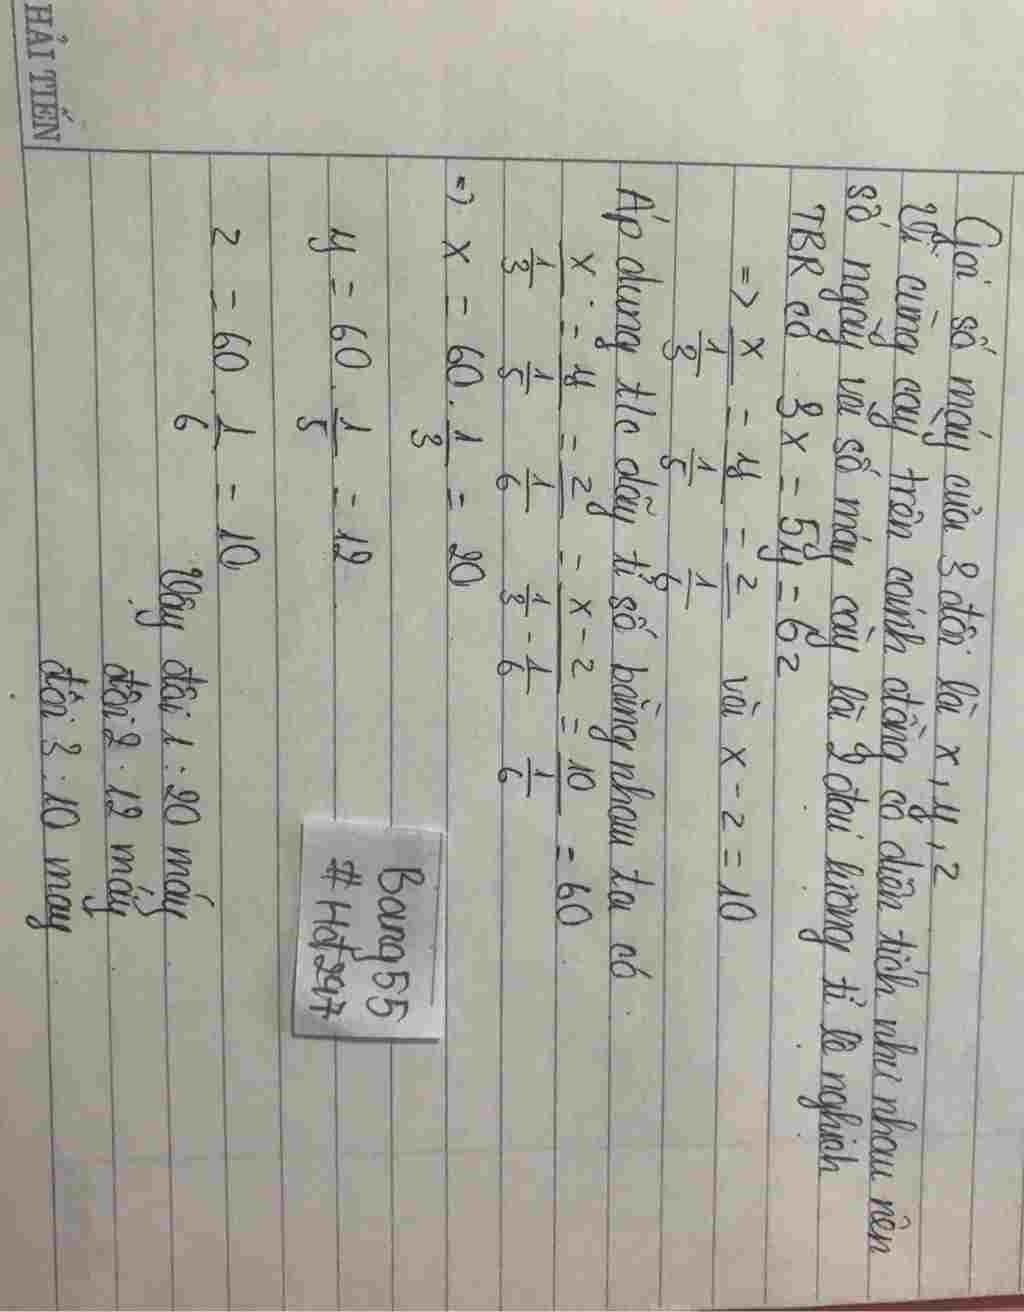 HẢI TIẾN
Gọi số máy của 3 đội là x, y, z
Vì cùng cày trên cánh đồng có diện tích như nhau nên
số ngày và số máy cày là 2 đại lượng tỉ lệ nghịch
TBR có 3x = 5y = 6z
=> x/(1/3) = y/(1/5) = z/(1/6) và x - z = 10
Áp dụng t/c dãy tỉ số bằng nhau ta có
x/(1/3) = y/(1/5) = z/(1/6) = (x - z)/(1/3 - 1/6) = 10/(1/6) = 60
=> x = 60 . 1/3 = 20
y = 60 . 1/5 = 12
z = 60 . 1/6 = 10
Vậy đội 1 : 20 máy
đội 2 : 12 máy
đội 3 : 10 máy
Bang55
#Hđ247